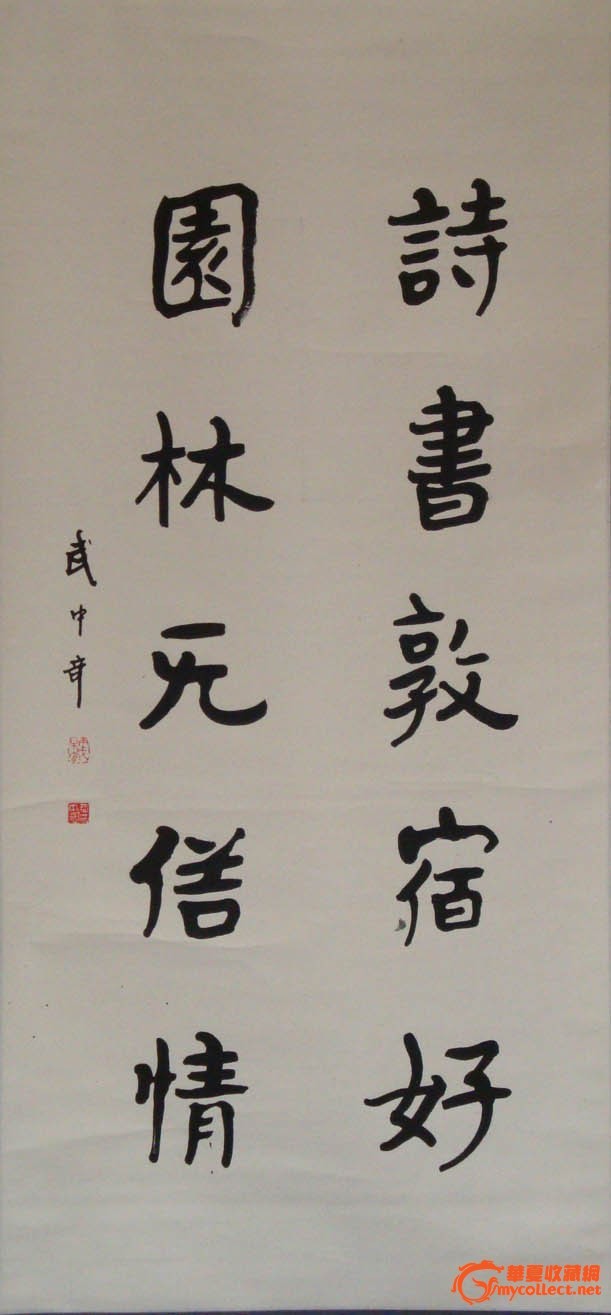 詩書敦宿好
園林无俗情
武中奇
華夏收藏網
mycollect.net